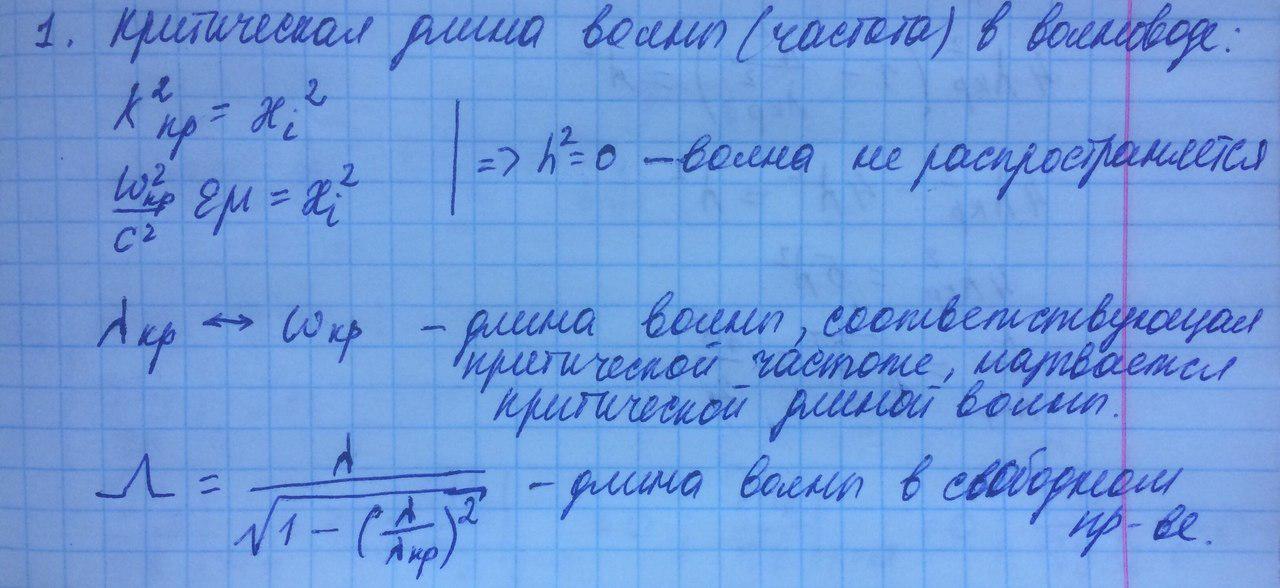 1. Критическая длина волны (частота) в волноводе:
K²кр = ϰᵢ²
ω²кр/c² εμ = ϰᵢ²
=> h² = 0 – волна не распространяется
λкр ↔ ωкр – длина волны, соответствующая
критической частоте, называется
критической длиной волны.
Λ = λ / √(1 – (λ/λкр)²) – длина волны в свободном
пр-ве.